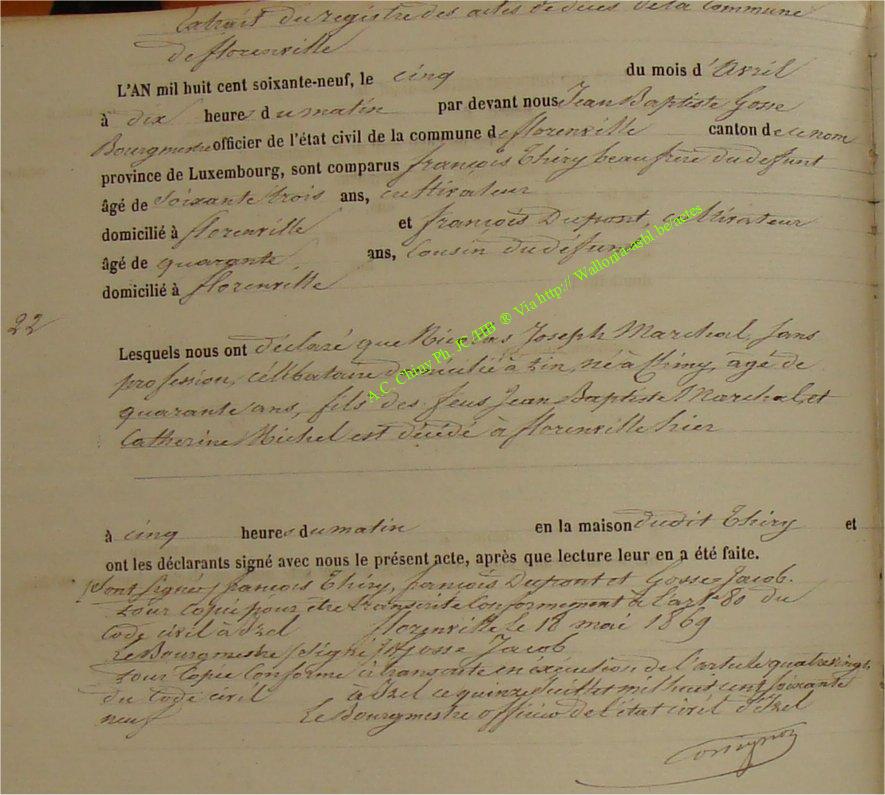 Extrait du registre des actes de décès de la Commune
de florenville
L'AN mil huit cent soixante-neuf, le cinq du mois d'Avril
à dix heure du matin par devant nous Jean Baptiste Gosse
Bourgmestre officier de l'état civil de la commune de florenville canton de ce nom
province de Luxembourg, sont comparus françois Thiry beau frère du défunt
âgé de Soixante trois ans, cultivateur
domicilié à florenville et françois Dupont, cultivateur
âgé de quarante ans, Cousin du défunt
domicilié à florenville
22
Lesquels nous ont déclaré que Joseph Marchal, sans
profession, célibataire domicilié à né à Chiny, agé de
quarante ans, fils des feus Jean Baptiste Marchal, et
Catherine Michel est décédé à florenville hier
à cinq heures du matin en la maison dudit Thiry et
ont les déclarants signé avec nous le présent acte, après que lecture leur en a été faite.
(Sont Signés) françois Thiry, françois Dupont et Gosse Jacob.
Pour Copie pour être transcrite Conformement à l'art 80 du
Code civil à Izel florenville le 18 mai 1869
Le Bourgmestre (signé) Gosse Jacob
Pour Copie Conforme transcrite en exécution de l'article quatrevingt
du Code civil à Izel ce quinze Juillet mil huit cent soixante
neuf Le Bourgmestre officier de l'état civil d'Izel
A.C. Chiny Ph. JC/HB ® Via http:// Wallonia-asbl.be/actes